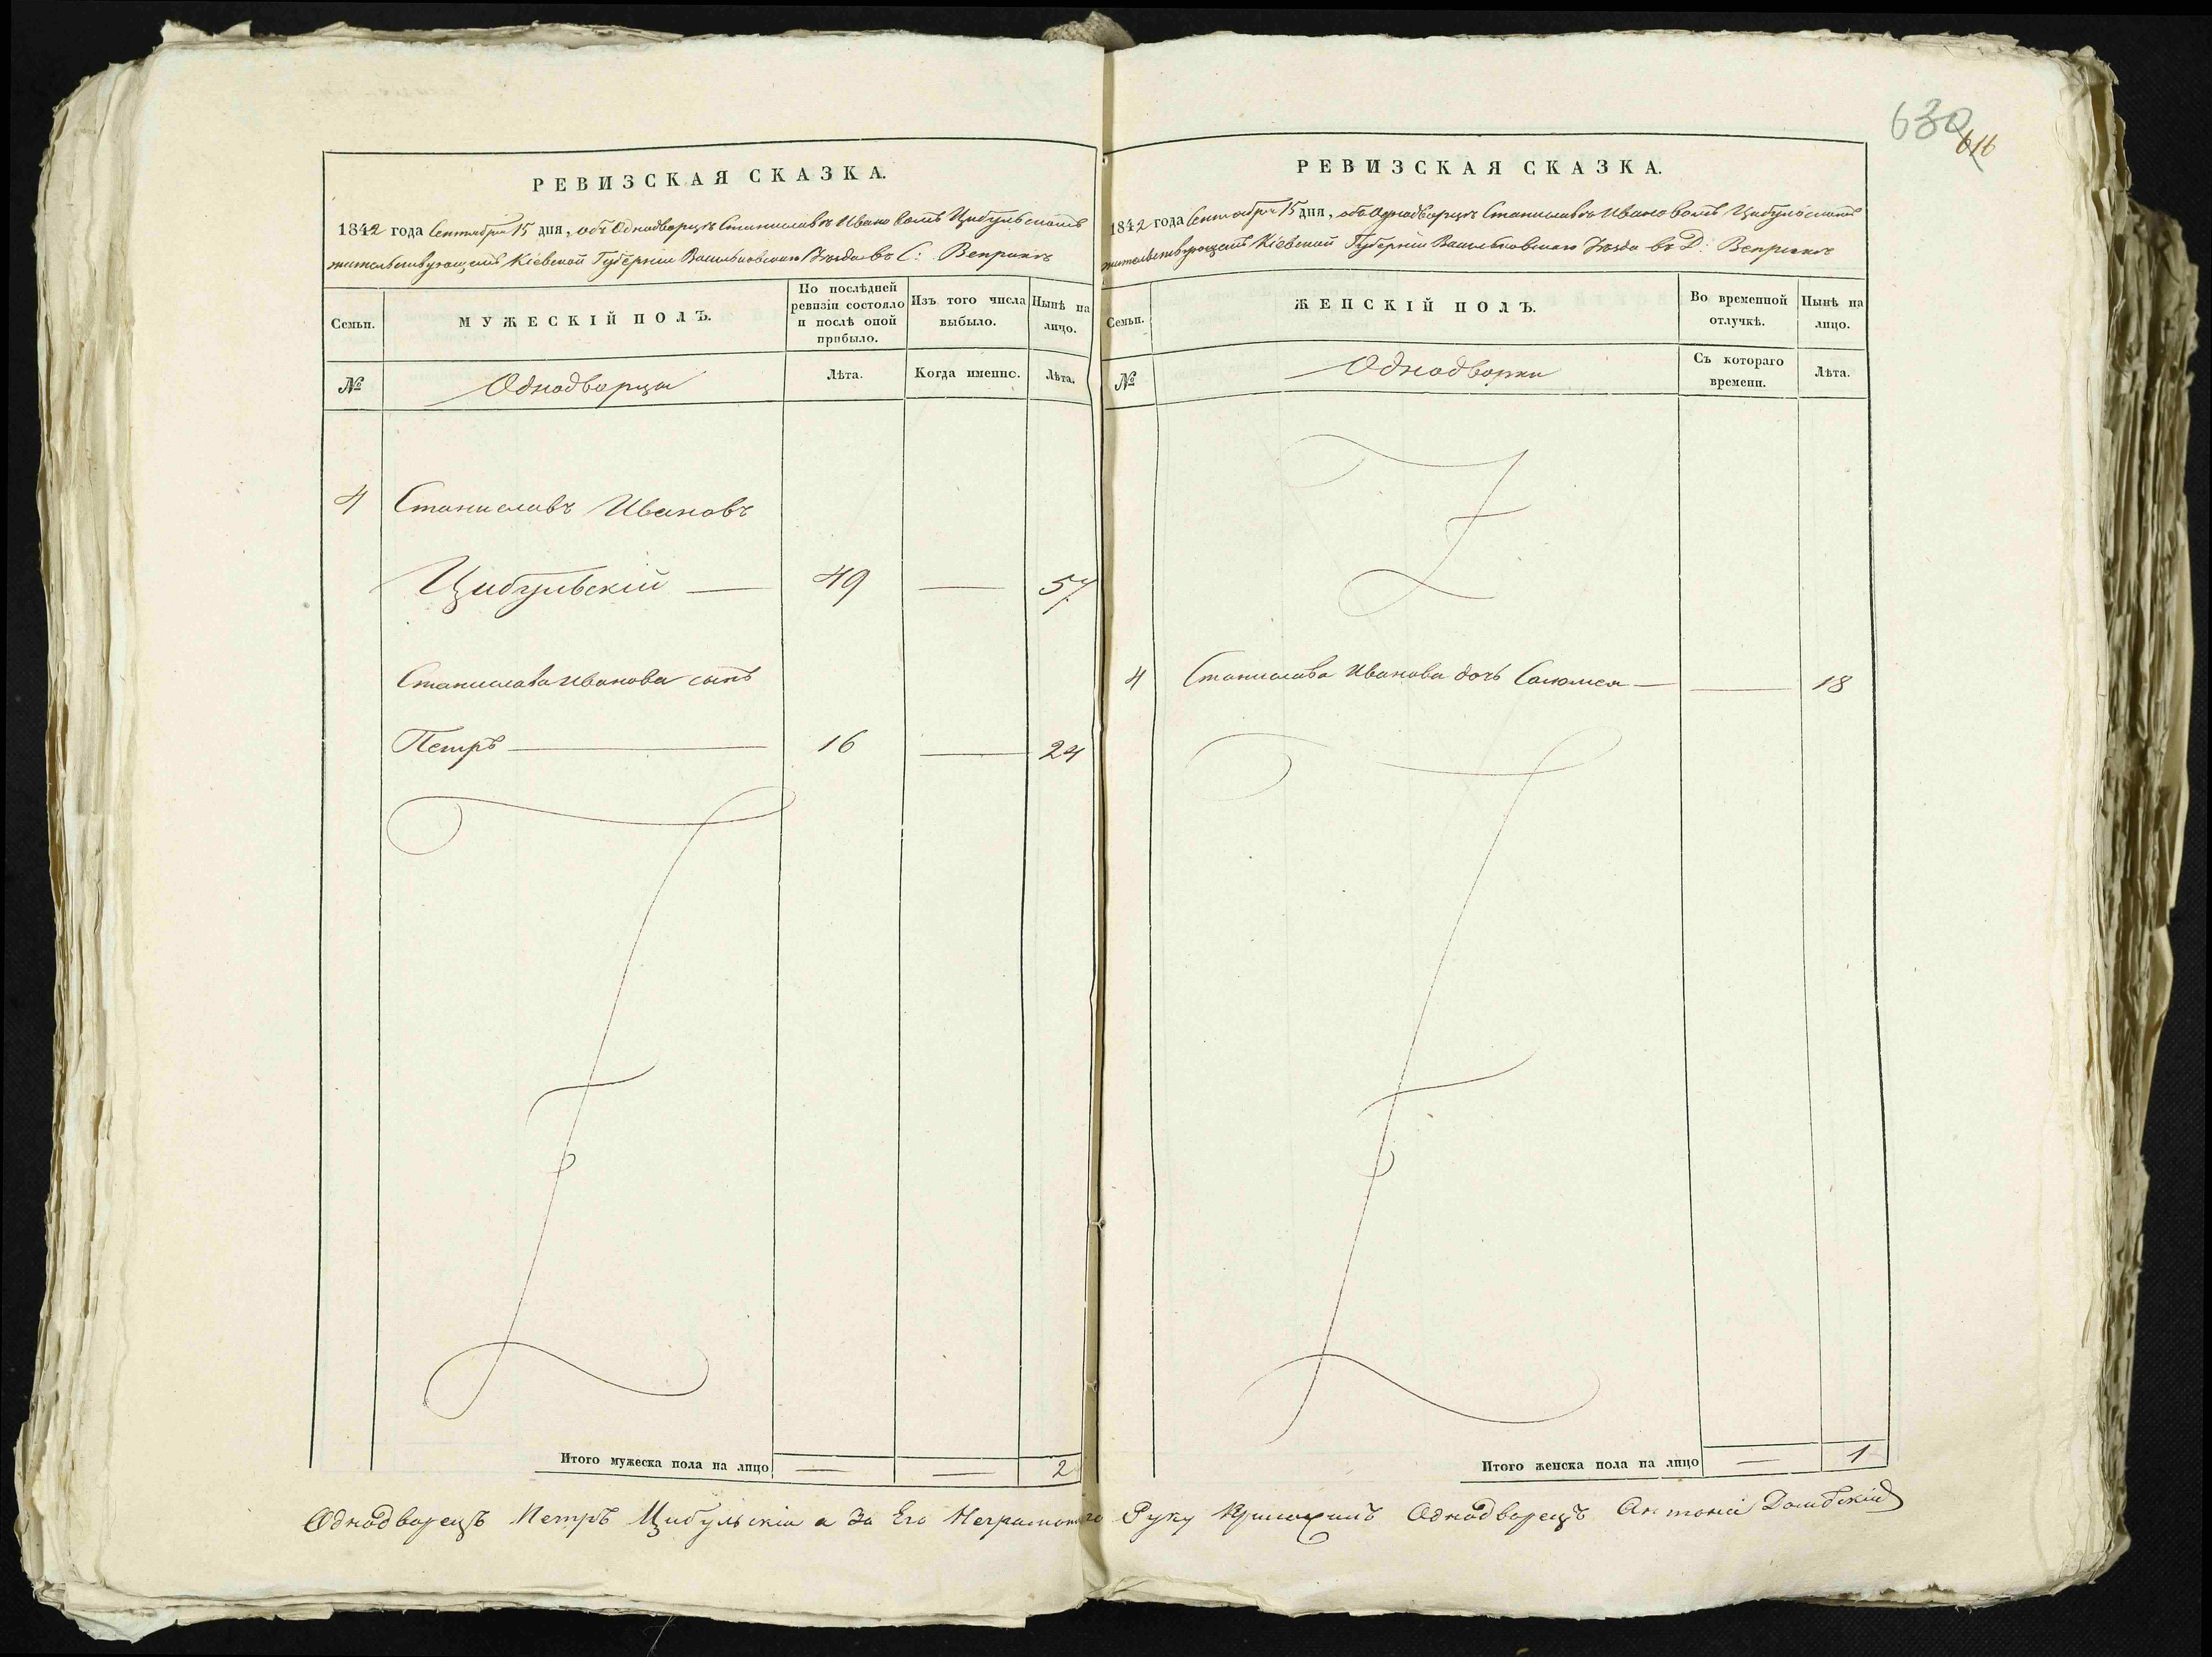 630
616
РЕВИЗСКАЯ СКАЗКА.
1842 года Сентября 15 дня, объ Однодворцѣ Станиславѣ Ивановомъ Цибульскомъ
жительствующемъ Кіевской Губерніи Васильковскаго Уѣзда въ С: Веприкѣ
Семьи.
МУЖЕСКІЙ ПОЛЪ.
По послѣдней ревизіи состояло и послѣ оной прибыло.
Изъ того числа выбыло.
Нынѣ на лицо.
№
Однодворцы
Лѣта.
Когда именно.
Лѣта.
4 Станиславъ Ивановъ
Цибульскій — 49 — 57
Станислава Иванова сынъ
Петръ — 16 — 24
Итого мужеска пола на лицо — — 2
РЕВИЗСКАЯ СКАЗКА.
1842 года Сентября 15 дня, объ Однодворцѣ Станиславѣ Ивановомъ Цибульскомъ
жительствующемъ Кіевской Губерніи Васильковскаго Уѣзда въ Д: Веприкѣ
Семьи.
ЖЕНСКІЙ ПОЛЪ.
Во временной отлучкѣ.
Нынѣ на лицо.
№
Однодворки
Съ котораго времени.
Лѣта.
4 Станислава Иванова дочь Саломея — — 18
Итого женска пола на лицо — 1
Однодворецъ Петръ Цибульскій а За Его Неграмотнаго Руку Приложилъ Однодворецъ Антоній Домбскій